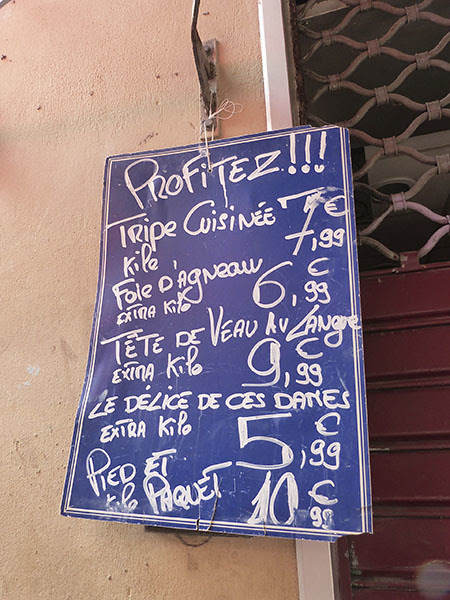 PROFITEZ!!!
TRIPE CUISINÉE 7€
Kilo 7,99
FOIE D'AGNEAU €
EXTRA Kilo 6,99
TÊTE DE VEAU AV LANGUE
EXTRA Kilo 9,99 €
LE DÉLICE DE CES DAMES
EXTRA Kilo 5,99 €
PIED ET PAQUET
Kilo 10 € 99